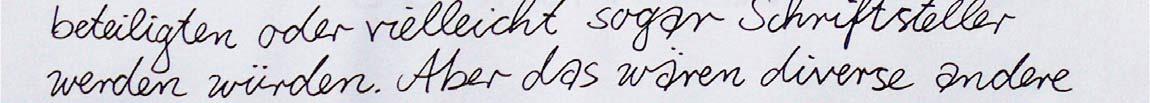 beteiligten oder vielleicht sogar Schriftsteller
werden würden. Aber das wären diverse andere